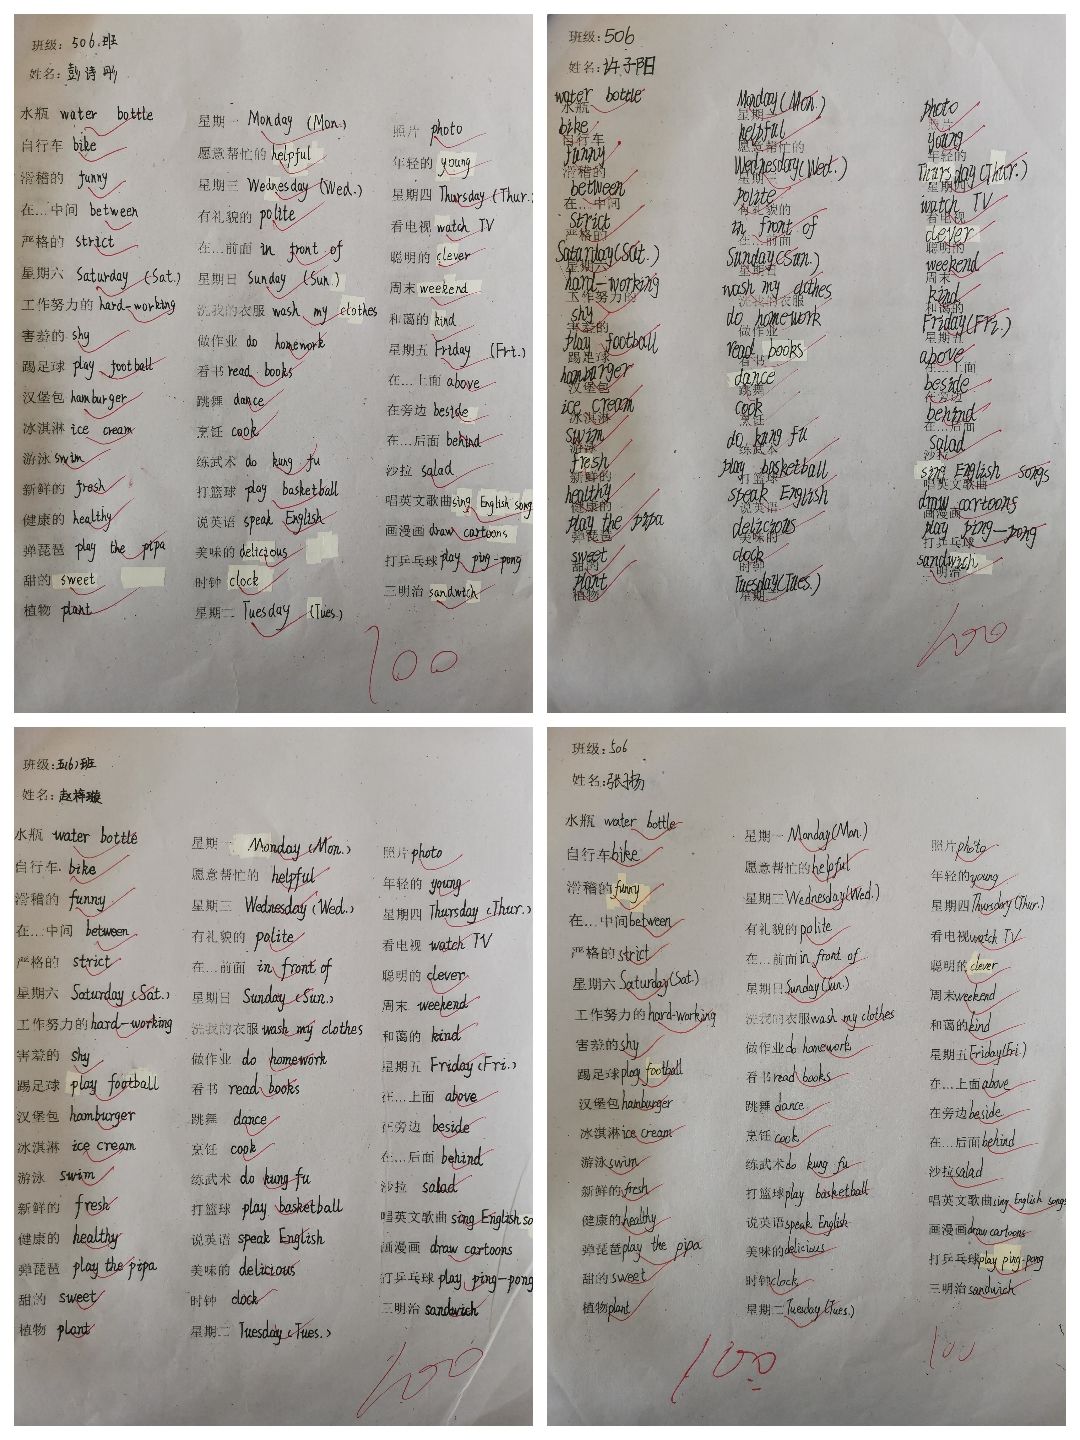 班级: 506.班
姓名: 彭诗彤
水瓶 water bottle
自行车 bike
滑稽的 funny
在...中间 between
严格的 strict
星期六 Saturday (Sat.)
工作努力的 hard-working
害羞的 shy
踢足球 play football
汉堡包 hamburger
冰淇淋 ice cream
游泳 swim
新鲜的 fresh
健康的 healthy
弹琵琶 play the pipa
甜的 sweet
植物 plant
星期一 Monday (Mon.)
愿意帮忙的 helpful
星期三 Wednesday (Wed.)
有礼貌的 polite
在...前面 in front of
星期日 Sunday (Sun.)
洗我的衣服 wash my clothes
做作业 do homework
看书 read books
跳舞 dance
烹饪 cook
练武术 do kung fu
打篮球 play basketball
说英语 speak English
美味的 delicious
时钟 clock
星期二 Tuesday (Tues.)
照片 photo
年轻的 young
星期四 Thursday (Thur.
看电视 watch TV
聪明的 clever
周末 weekend
和蔼的 kind
星期五 Friday (Fri.)
在...上面 above
在旁边 beside
在...后面 behind
沙拉 salad
唱英文歌曲 sing English song
画漫画 draw cartoons
打乒乓球 play ping-pong
三明治 sandwich
100
班级: 506
姓名: 许子阳
water bottle
水瓶
bike
自行车
funny
滑稽的
between
在...中间
strict
严格的
Saturday(Sat.)
星期六
hard-working
工作努力的
shy
害羞的
play football
踢足球
hamburger
汉堡包
ice cream
冰淇淋
swim
游泳
fresh
新鲜的
healthy
健康的
play the pipa
弹琵琶
sweet
甜的
plant
植物
Monday(Mon.)
星期一
helpful
愿意帮忙的
Wednesday(Wed.)
星期三
polite
有礼貌的
in front of
在...前面
Sunday(Sun.)
星期日
wash my clothes
洗我的衣服
do homework
做作业
read books
看书
dance
跳舞
cook
烹饪
do kung fu
练武术
play basketball
打篮球
speak English
说英语
delicious
美味的
clock
时钟
Tuesday(Tues.)
星期二
photo
照片
young
年轻的
Thursday(Thur.)
星期四
watch TV
看电视
clever
聪明的
weekend
周末
kind
和蔼的
Friday(Fri.)
星期五
above
在...上面
beside
在旁边
behind
在...后面
salad
沙拉
sing English songs
唱英文歌曲
draw cartoons
画漫画
play ping-pong
打乒乓球
sandwich
三明治
100
班级: 五(6)班
姓名: 赵梓璇
水瓶 water bottle
自行车 bike
滑稽的 funny
在...中间 between
严格的 strict
星期六 Saturday (Sat.)
工作努力的 hard-working
害羞的 shy
踢足球 play football
汉堡包 hamburger
冰淇淋 ice cream
游泳 swim
新鲜的 fresh
健康的 healthy
弹琵琶 play the pipa
甜的 sweet
植物 plant
星期一 Monday (Mon.)
愿意帮忙的 helpful
星期三 Wednesday (Wed.)
有礼貌的 polite
在...前面 in front of
星期日 Sunday (Sun.)
洗我的衣服 wash my clothes
做作业 do homework
看书 read books
跳舞 dance
烹饪 cook
练武术 do kung fu
打篮球 play basketball
说英语 speak English
美味的 delicious
时钟 clock
星期二 Tuesday (Tues.)
照片 photo
年轻的 young
星期四 Thursday (Thur.)
看电视 watch TV
聪明的 clever
周末 weekend
和蔼的 kind
星期五 Friday (Fri.)
在...上面 above
在旁边 beside
在...后面 behind
沙拉 salad
唱英文歌曲 sing English so
画漫画 draw cartoons
打乒乓球 play ping-pong
三明治 sandwich
100
班级: 506
姓名: 张扬
水瓶 water bottle
自行车 bike
滑稽的 funny
在...中间 between
严格的 strict
星期六 Saturday(Sat.)
工作努力的 hard-working
害羞的 shy
踢足球 play football
汉堡包 hamburger
冰淇淋 ice cream
游泳 swim
新鲜的 fresh
健康的 healthy
弹琵琶 play the pipa
甜的 sweet
植物 plant
星期一 Monday(Mon.)
愿意帮忙的 helpful
星期三 Wednesday(Wed.)
有礼貌的 polite
在...前面 in front of
星期日 Sunday(Sun.)
洗我的衣服 wash my clothes
做作业 do homework
看书 read books
跳舞 dance
烹饪 cook
练武术 do kung fu
打篮球 play basketball
说英语 speak English
美味的 delicious
时钟 clock
星期二 Tuesday(Tues.)
照片 photo
年轻的 young
星期四 Thursday(Thur.)
看电视 watch TV
聪明的 clever
周末 weekend
和蔼的 kind
星期五 Friday(Fri.)
在...上面 above
在旁边 beside
在...后面 behind
沙拉 salad
唱英文歌曲 sing English songs
画漫画 draw cartoons
打乒乓球 play ping-pong
三明治 sandwich
100
100